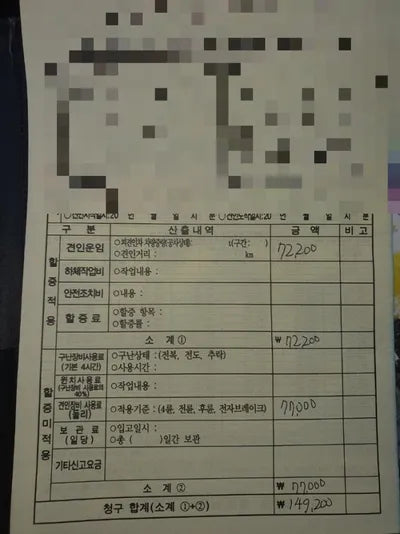 구 분 산출내역 금 액 비고
할증적용
견인운임 ○피견인차 차량중량(공사상태: t(구간: ) 72,200
○견인거리 : km
하체작업비 ○작업내용 :
안전조치비 ○내용 :
할 증 료 ○할증 항목 :
○할증률 :
소 계 ① ₩ 72,200
할증미적용
구난장비사용료 (기본 4시간) ○구난상태 : (전복, 전도, 추락)
○사용시간 :
윈치사용료 (구난장비 사용료의 40%) ○작업내용 :
견인장비 사용료 (돌리) ○적용기준 : (4륜, 전륜, 후륜, 전자브레이크) 77,000
보 관 료 (일당) ○입고일시 :
○총 ( )일간 보관
기타신고요금
소 계 ② ₩ 77,000
청구 합계(소계 ①+②) ₩ 149,200